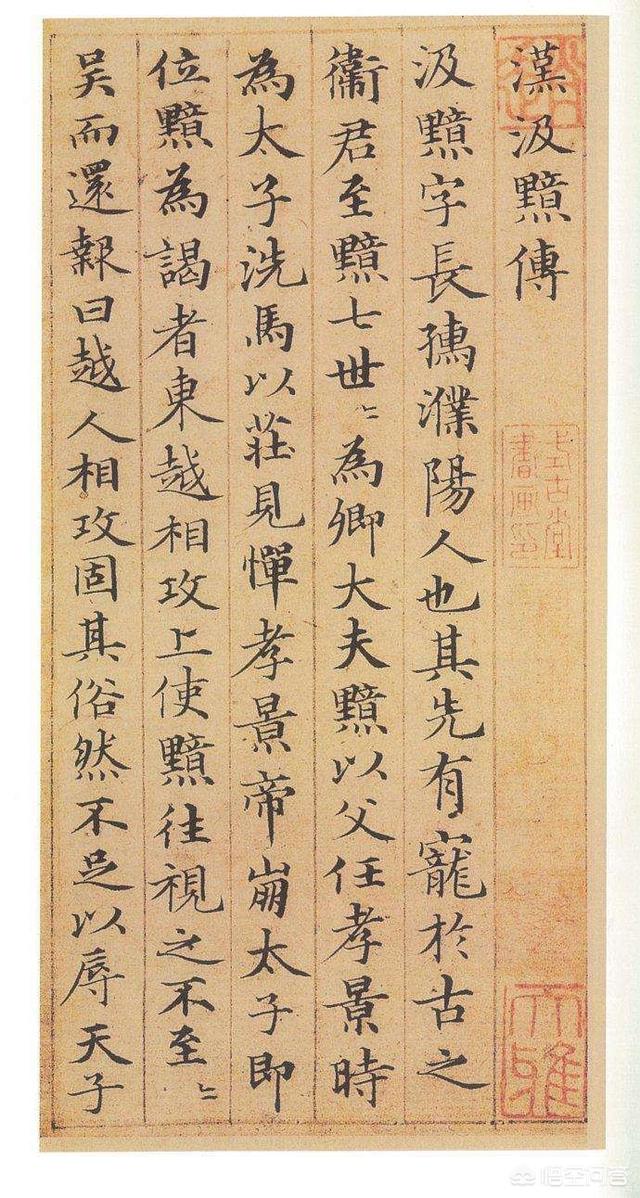 漢汲黯傳
汲黯字長孺濮陽人也其先有寵於古之
衛君至黯七世〻為卿大夫黯以父任孝景時
為太子洗馬以莊見憚孝景帝崩太子即
位黯為謁者東越相攻上使黯往視之不至〻
吳而還報曰越人相攻固其俗然不足以辱天子
式古堂
書畫印
大雅
悟空问答